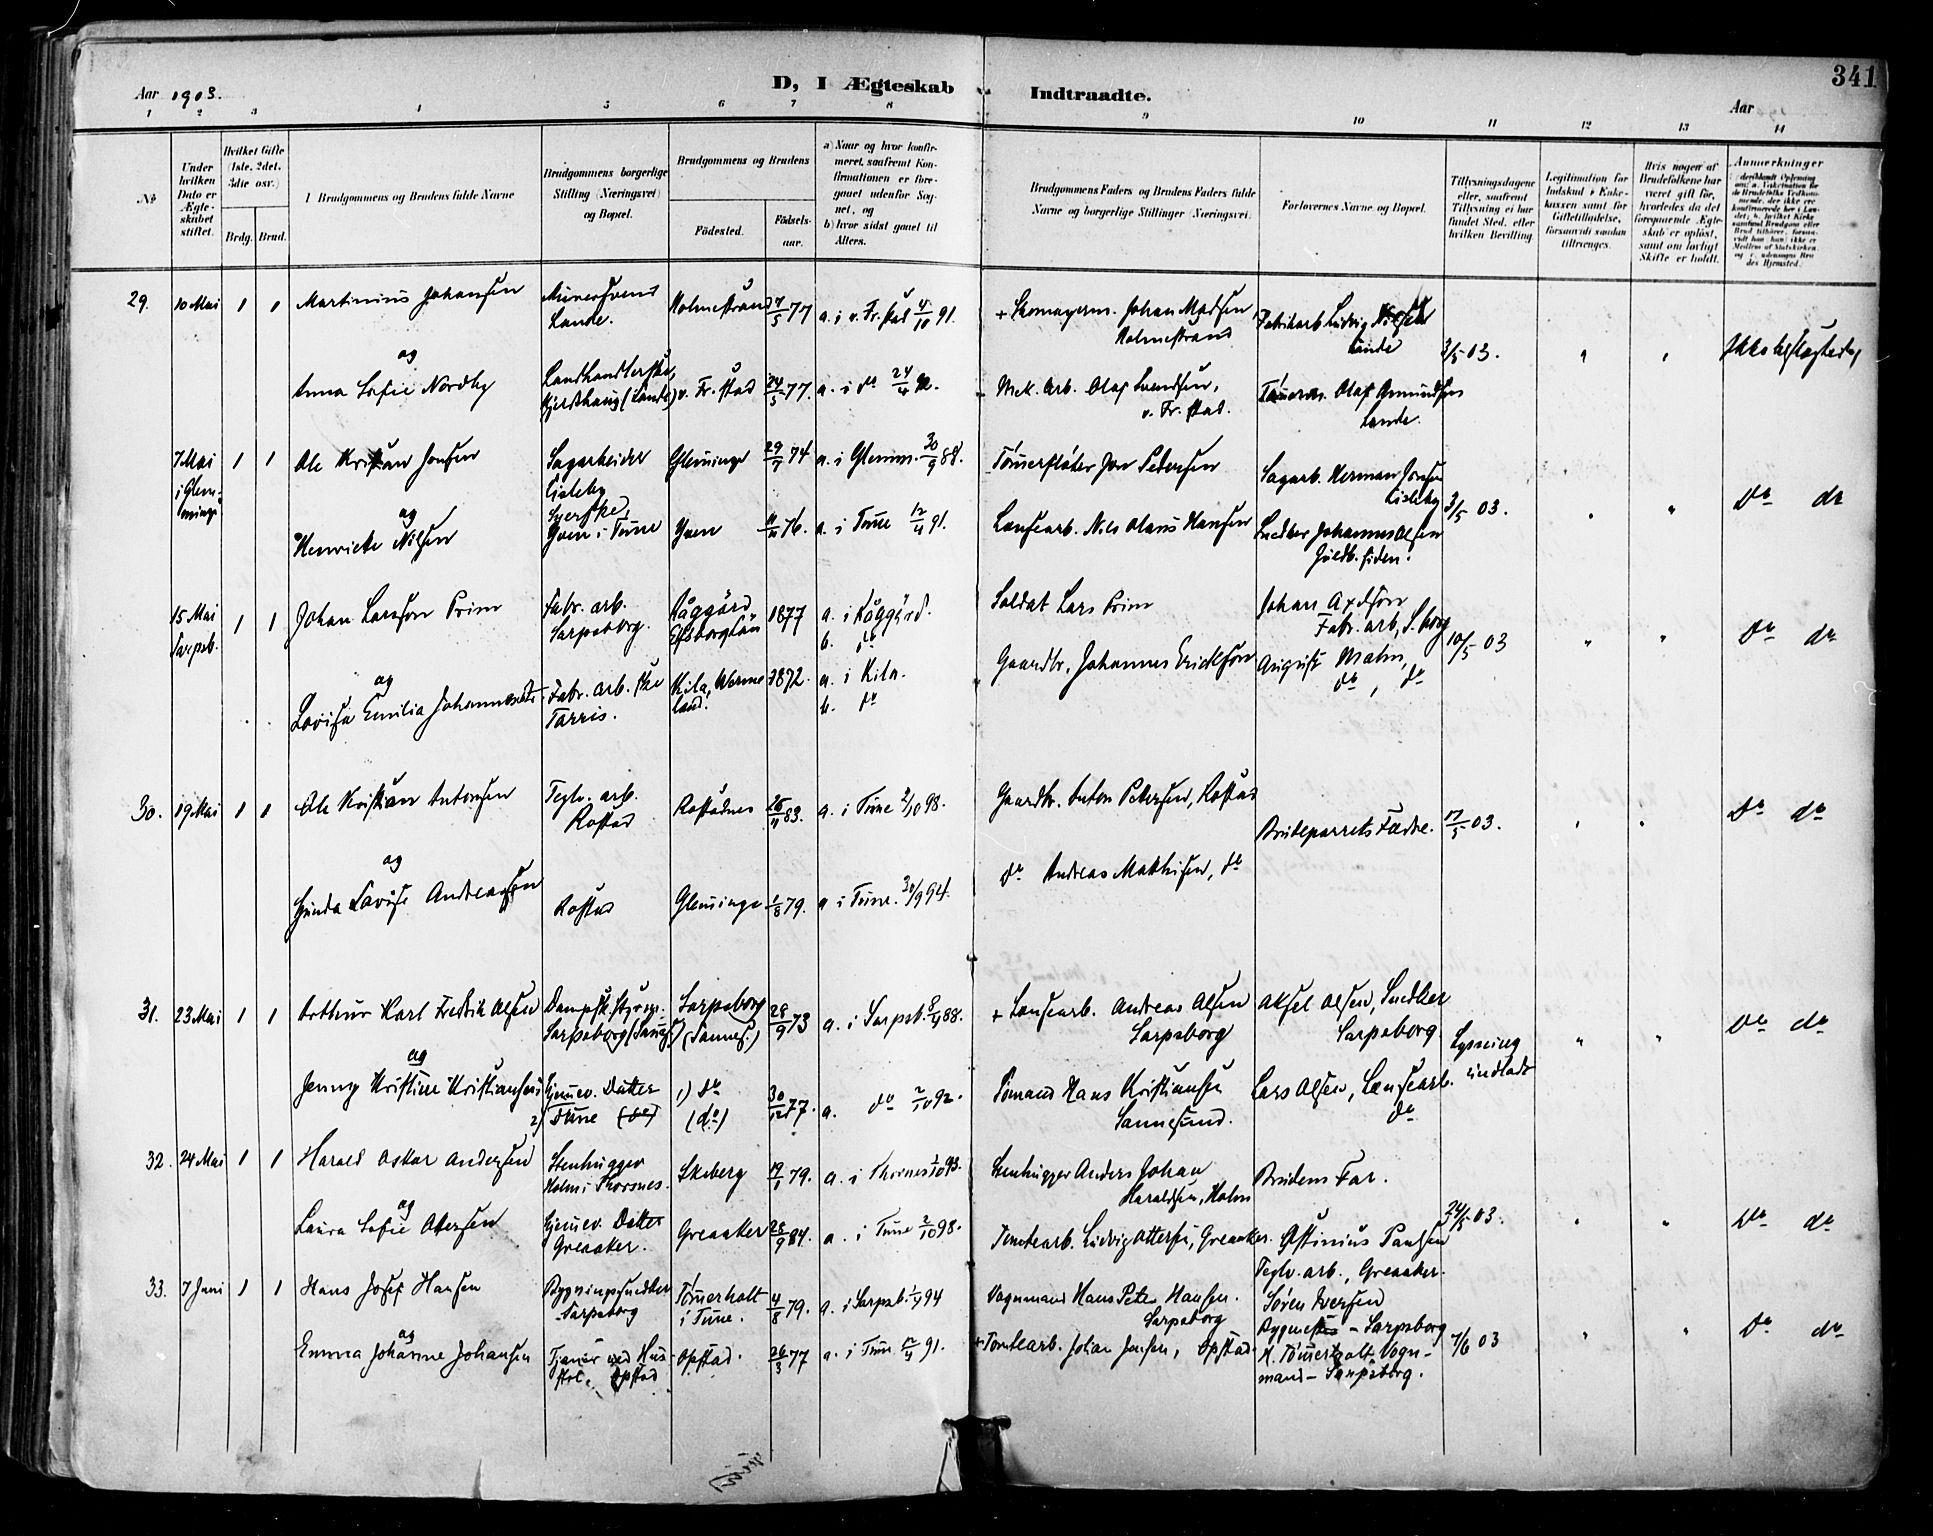 341
Aar 1903.
D, I Ægteskab Indtraadte.
Aar
1 2 3 4 5 6 7 8 9 10 11 12 13 14
№
Under hvilken Dato er Ægteskabet stiftet.
Hvilket Gifte (1ste, 2det, 3die osv.)
Brdg. Brud.
Brudgommens og Brudens fulde Navne
Brudgommens borgerlige Stilling (Næringsvei) og Bopæl.
Brudgommens og Brudens
Fødested. Fødselsaar.
a) Naar og hvor konfirmeret, saafremt Konfirmationen er foregaaet udenfor Sognet, og
b) hvor sidst gaaet til Alters.
Brudgommens Faders og Brudens Faders fulde Navne og borgerlige Stillinger (Næringsvei).
Forlovernes Navne og Bopæl.
Tillysningsdagene eller, saafremt Tillysning ei har fundet Sted, efter hvilken Bevilling.
Legitimation for Indskud i Enkekassen samt for Giftetilladelse, forsaavidt saadan tiltrænges.
Hvis nogen af Brudefolkene har været gift før, hvorledes da det foregaaende Ægteskab er opløst, samt om lovligt Skifte er holdt.
Anmerkninger
29. 10 Mai 1 1 Martinius Johansen Murersvend Lande. Holmestrand 7/5 77 a. i v. Fr.stad 4/10 91. + Skomagerm. Johan Madsen Holmestrand Fabrikarb. Ludvig Lande 3/5 03. " " Ikke beslægtede
og
Anna Sofie Nordby Landhandlerske, (Lande) v. Fr.stad 24/5 77. a. i do 24/4 92. Mek. Arb. Olaf Svendsen, v. Fr.stad. Tømerm. Olaf Amundsen Lande.
7 Mai i Glemminge 1 1 Ole Kristian Jonsen Sagarbeider Lisleby Glemminge 29/7 74 a. i Glemm. 30/9 88. Tømerfløter Jon Pedersen Sagarb. Herman Jonsen Lisleby 3/5 03. " " do do
og
Henriette Nilsen Syerske, Yven i Tune Yven 76. a. i Tune 12/4 91. Lænsearb. Nils Olaus Hansen Snedker Johannes Olsen
15 Mai Sarpsb. 1 1 Johan Larsson Prim Fabr. arb. Sarpsborg. Råggärd Elfsborgslän 1877 a. i Råggärd. b. do Soldat Lars Prim Johan Axelson Fabr. arb, S.borg 10/5 03 " " do do
og
Lovisa Emilia Johannesdt. Fabr. arb.ske Tarris. Kila, Wermeland. 1872. a. i Kila. b. do Gaardbr. Johannes Erickson August Malm, do, do
30. 19 Mai 1 1 Ole Kristian Antonsen Teglv. arb. Rostad Rostadnes 26/11 83. a. i Tune 2/10 98. Gaardbr. Anton Petersen, Rostad Brudeparrets Fædre. 17/5 03. " " do do
og
Gunda Lovise Andreassen Rostad Glemminge 1/8 79. a i Tune. 30/9 94. do Andreas Mathisen, do
31. 23 Mai 1 1 Arthur Karl Fredrik Olsen Dampsk. styrm. Sarpsborg (Sannes.) Sarpsborg (Sannes.) 28/9 73 a. i Sarpsb. 8/4 88. + Lænsearb. Andreas Olsen Sarpsborg Aksel Olsen, Snedker Sarpsborg. Lysning undladt " " do do
og
Jenny Kristine Kristiansen Hjemmev. Datter 2) Tune (do) 1) do (do) 30/12 77. a. do 2/10 92. Tømand Hans Kristiansen Sannesund. Lars Olsen, Lænsearb. do
32. 24 Mai 1 1 Harald Oskar Andersen Stenhugger Holm i Thorsnes. Skeberg 19/1 79. a. i Thorsnes 1/10 93. Stenhugger Anders Johan Haraldsen, Holm Brudens Far. 24/5 03. " " do do
og
Laura Sofie Ottersen Hjemmev. Datter Greaaker. Greaaker 28/9 84. a. i Tune 2/10 98. Tomtearb. Ludvig Ottersen, Greaaker. Østinius Paulsen Teglv. arb., Greaaker.
33. 7 Juni 1 1 Hans Josef Hansen Bygningssnedker Sarpsborg Tømerholt i Tune. 4/8 79. a. i Sarpsb. 1/4 94 Vognmand Hans Peter Hansen. Sarpsborg Søren Iversen Bygmester – Sarpsborg 7/6 03 " " do do
og
Emma Johanne Johansen Tjener ved Hus stel. Opstad Opstad. 26/3 77 a. i Tune. 12/4 91. + Tomtearb. Johan Jensen, Opstad H. Tømerholt Vognmand – Sarpsborg.